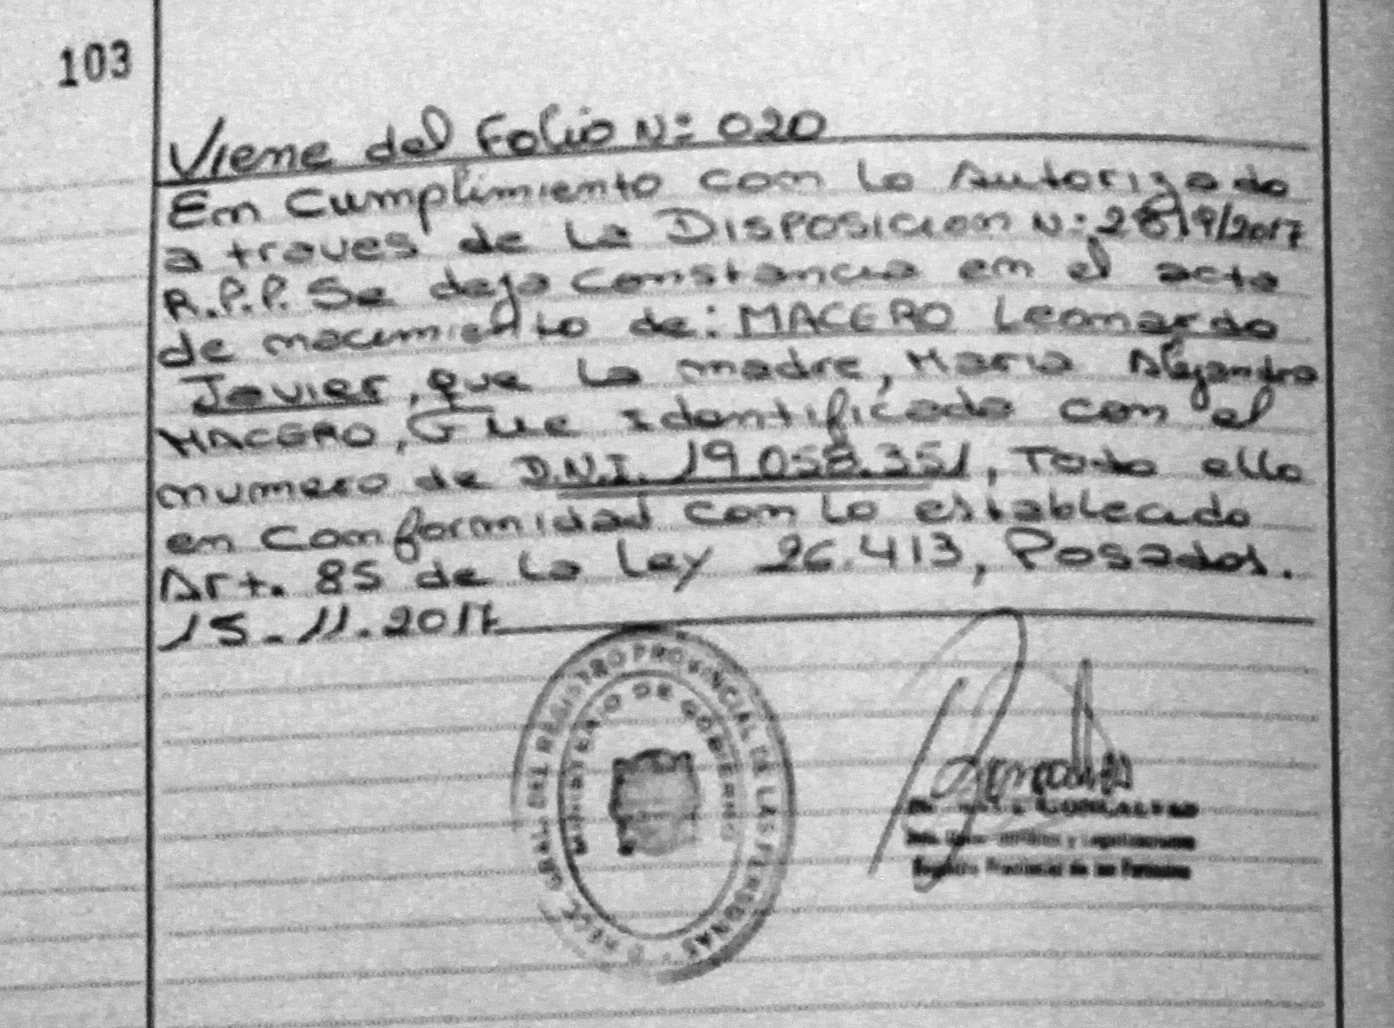 103
Viene del Folio N: 020
En Cumplimiento con lo Autorizado
a traves de la Disposicion N: 2819/2017
R.P.P. Se deja Constancia en el acta
de nacimiento de: MACERO Leonardo
Javier, que la madre, Maria Alejandra
MACERO, Fue identificada con el
numero de D.N.I. 19.058.351, Todo ello
en Conformidad con lo establecido
Art. 85 de la Ley 26.413, Posadas.
15.11.2017
GRAL DEL REGISTRO PROVINCIAL DE LAS PERSONAS
MINISTERIO DE GOBIERNO
GONCALVES
y Legalizaciones
Registro Provincial de las Personas